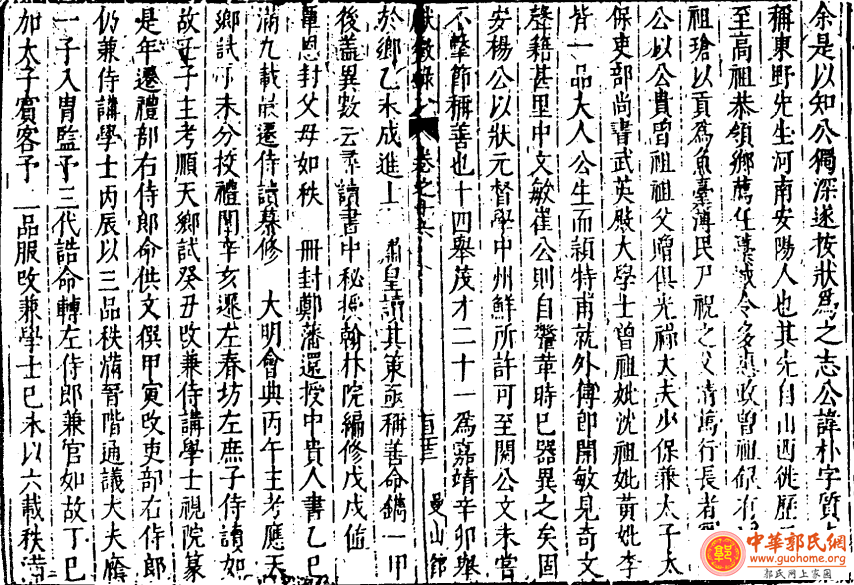 余是以知公獨深遂按狀爲之志公諱朴字質
稱東野先生河南安陽人也其先自山西徙歷
至高祖恭領鄉薦任令多惠政曾祖銀有
祖瑲以貢爲魚臺簿民尸祝之父清萬行長者
公以公貴曾祖祖父贈俱光祿大夫少保兼太子太
保吏部尚書武英殿大學士曾祖妣沈祖妣黃妣李
皆一品夫人公生而穎特甫就外傅即開敏見奇文
聲籍甚里中文敏崔公則自時已器異之矣固
安楊公以狀元督學中州鮮所許可至閱公文未嘗
不擊節稱善也十四舉茂才二十一爲嘉靖辛卯舉
獻徵錄 卷之十六 曼山館
於鄉乙未成進士 肅皇讀其策亟稱善命鐫一甲
後蓋異數云尋讀書中秘授翰林院編修戊戌值
覃恩封父母如秩 冊封鄭藩還授中貴人書乙巳
滿九載遷侍讀纂修 大明會典丙午主考應天
鄉試丁未分校禮闈辛亥遷左春坊左庶子侍讀如
故壬子主考順天鄉試癸丑改兼侍講學士視院篆
是年遷禮部右侍郎命供文撰甲寅改吏部右侍郎
仍兼侍講學士丙辰以三品秩滿晉階通議大夫廕
一子入胄監予三代誥命轉左侍郎兼官如故丁巳
加太子賓客予二品服改兼學士已未以六載秩滿
中華郭氏網
www.guohome.org
郭氏网上家園